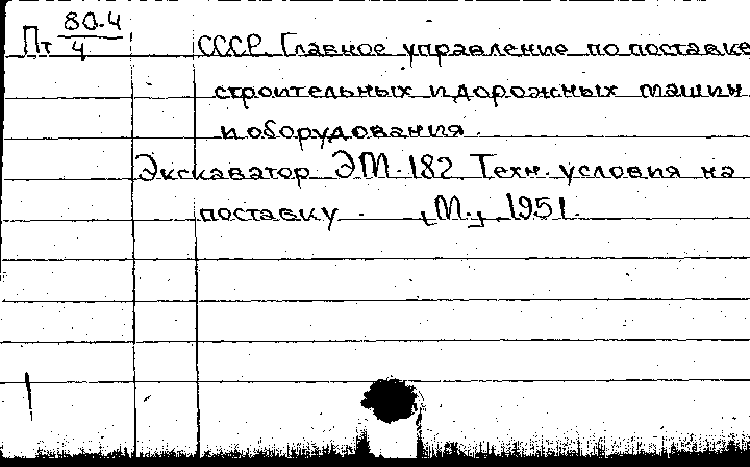 Пт 80.4/4
СССР. Главное управление по поставке
строительных и дорожных машин
и оборудования.
Экскаватор ЭМ-182. Техн. условия на
поставку. [М.], 1951.